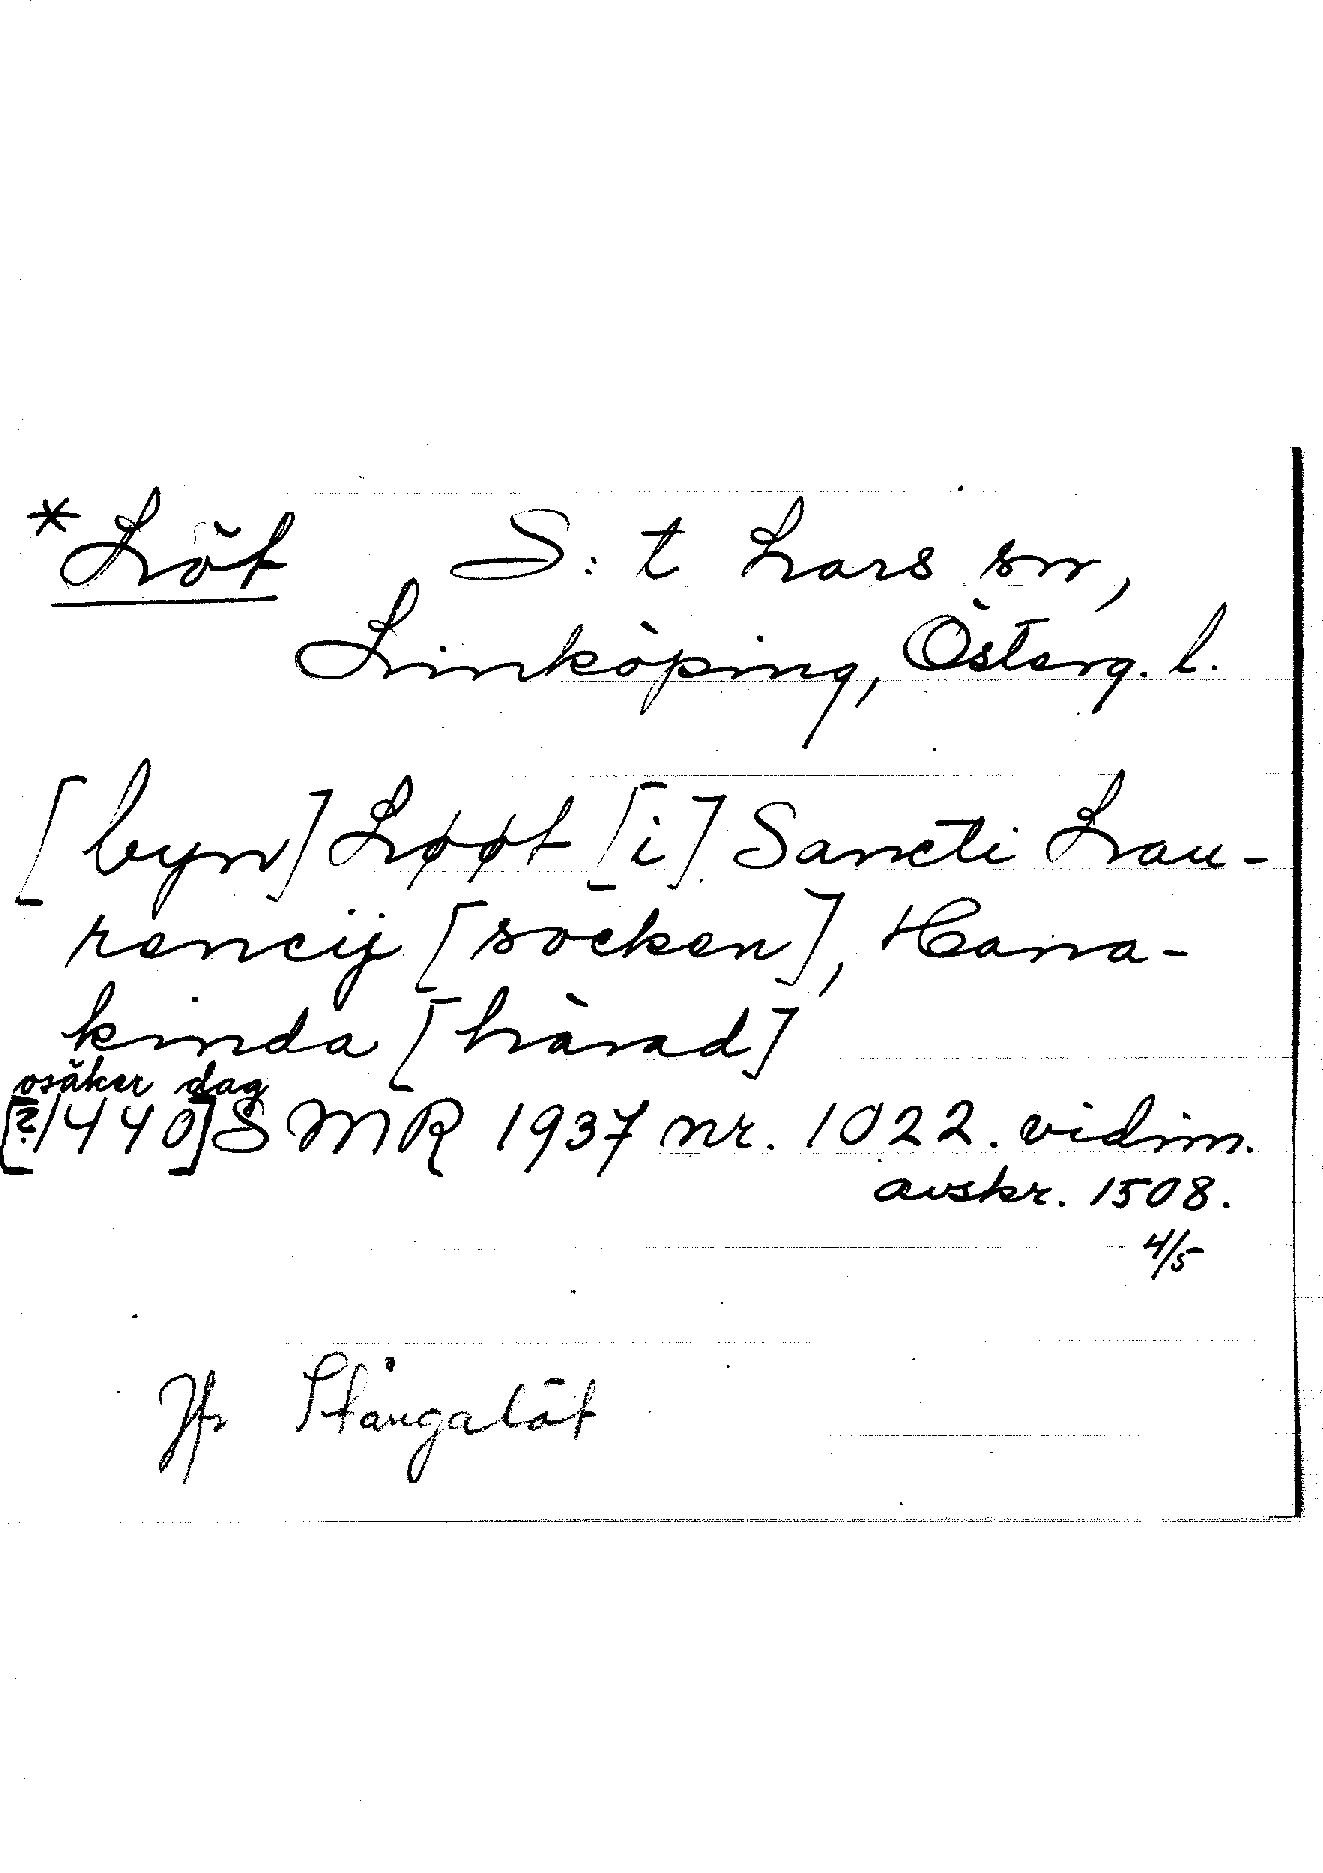 *Löt S:t Lars sn,
Linköping, Österg. l.
[byn] Løøt [i] Sancti Lau-
rencij [socken], Hana-
kinda [härad]
osäker dag
[? 1440] SMR 1937 nr. 1022. vidim.
avskr. 1508.
4/5
Jfr Stångalöt